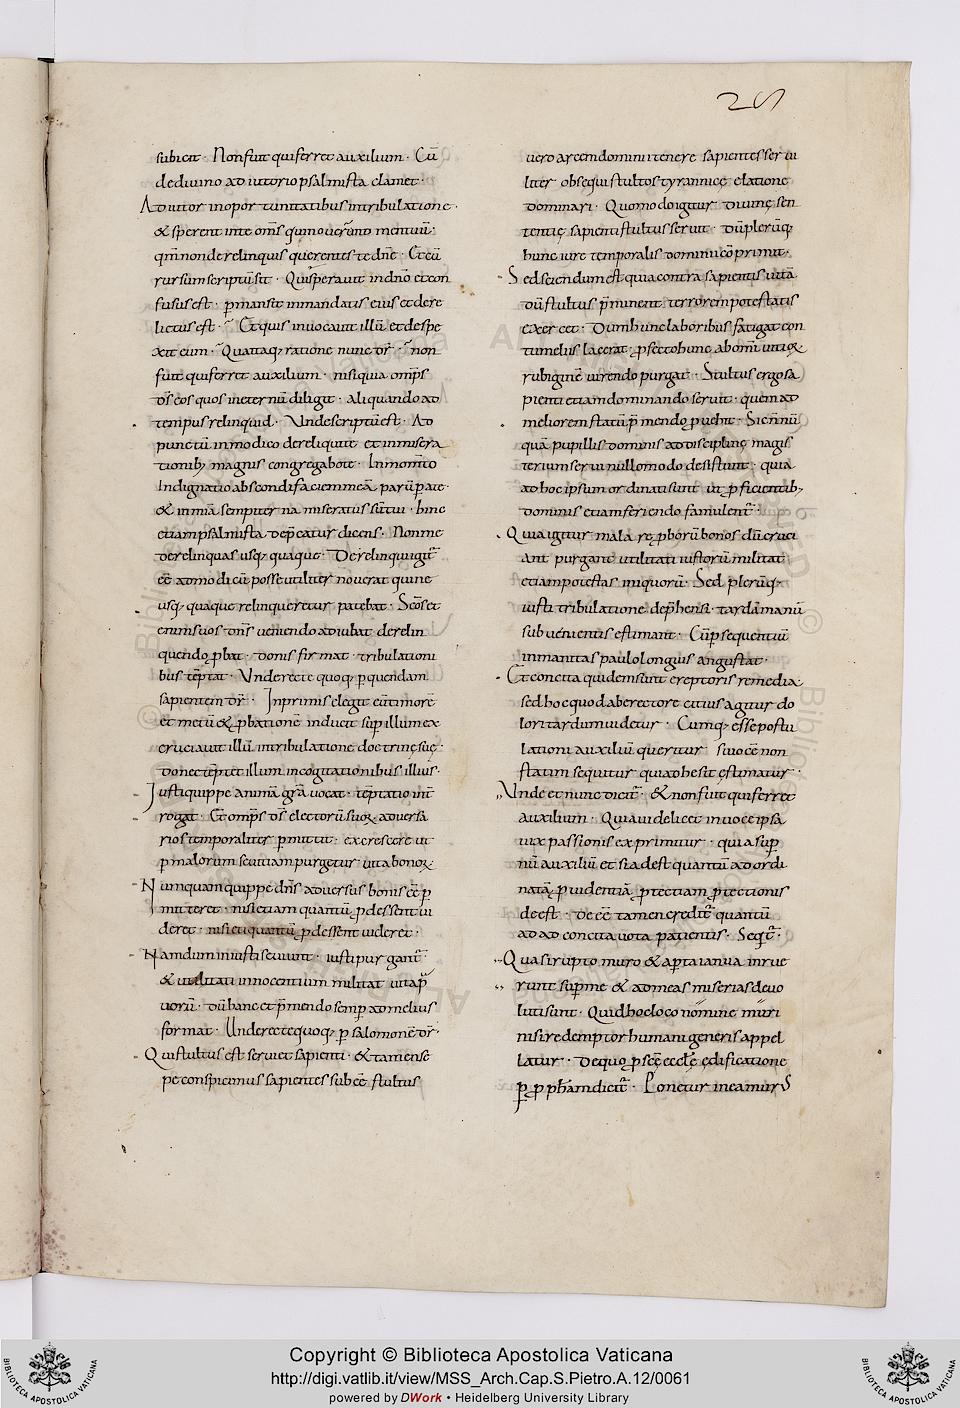 25
subicit · Non fuit qui ferret auxilium · Cū
de divino adiutorio psalmista clamet ·
Adiutor in oportunitatibus in tribulatione ·
& sperent in te om̄s qui noverunt nomen tuū ·
qm̄ non derelinquis querentes te dn̄e · Et cū
rursum scriptū sit · Quis speravit in dn̄o et con
fusus est · p̄mansit in mandatis eius et dere
lictus est · Et quis invocavit illū et despe
xit eum · Qua itaq; ratione nunc dr̄ · non
fuit qui ferret auxilium · nisi quia omp̄s
ds̄ eos quos in eternū diligit · aliquando ad
tempus relinquid · Unde scriptū est · Ad
punctū in modico dereliqui te et in misera
tionib; magnis congregabo te · In momto
indignatio abscondi faciem meā parūp a te ·
& in mīa sempiterna miseratus sū tui · hinc
etiam psalmista dep̄catur dicens · Non me
derelinquas usq; quaque · Derelinqui igit̄
eē ad modicū posse utiliter noverat qui ne
usq; quaque relinqueretur petebat · Scōs et
enim suos dn̄s veniendo adiubat derelin
quendo p̱bat · donis firmat · tribulationi
bus tēptat · Unde recte quoq; p quendam
sapientem dr̄ · In primis elegit eū timorē
et metū & p̱bationē inducit sup illum ex
cruciavit illū in tribulatione doctrinę suę ·
donec tēptet illum in cogitationibus illius ·
Iusti quippe animā gr̄a vocat · tēptatio int̄
rogat · Et omp̄s ds̄ electorū suoꝝ adversa
rios temporaliter p̄mittit · excrescere ut
p malorum sevitiam purgetur vita bonoꝝ
Numquam quippe dn̄s adversus bonis eē p
mitteret · nisi etiam quantū p̱dessent vi
deret · nisi et quantū p̱dessent videret ·
Nam dum iniusti seviunt · iusti purgant̄ ·
& utilitati innocentium militat vita p̱
vorū · dū hanc et p̄mendo semp ad melius
format · Unde recte quoq; p salomonē dr̄ ·
Qui stultus est serviet sapienti · & tamen se
pe conspicimus sapientes sub eē stultus
vero arcem dominii tenere sapientes servi
liter obsequi stultos tyrannicę elatione
dominari · Quomodo igitur divinę sen
tentię sapienti stultus servit · dū plerūq;
hunc iure temporalis dominii cō primit ·
Sed sciendum est quia contra sapientis vitā
dū stultus p̄minent terrorem potestatis
exercet · Dum hunc laboribus fatigat con
tumeliis lacerat · p̱fecto hunc ab om̄i vitioꝝ
rubiginē urendo purgat · Stultus ergo sa
pienti etiam dominando servit · quem ad
meliorem statū p̄mendo p̱vehit · Sic enī nū
quā pupillis dominis ad disciplinę magis
terium servi nullomodo desistunt · quia
ad hoc ipsum ordinati sunt ut p̱ficientib;
dominis etiam feriendo famulent̄ ·
Quia igitur mala rep̱borū bonos dū cruci
ant purgant utilitati iustorū militat
etiam potestas iniquorū · Sed plerūq;
iusti tribulatione dep̄hensi · tardā manū
subvenientis estimant · Cū p̄sequentiū
inmanitas paulo longius angustat ·
Et concita quidem sunt ereptoris remedia
sed hoc quod ab erectore citius agitur do
lori tardum videtur · Cumq; esse postu
lationi auxiliū queritur si voce non
statim sequitur quia obesit estimatur ·
Unde et nunc dicit̄ · & non fuit qui ferret
auxilium · Quia videlicet in voce ipsa
vix passionis exprimitur · quia sup
nū auxiliū et si adest quantū ad ordi
natā p̱videntiā p̱tectiam p̱tectionis
deest · deeē tamen credit̄ quantū
ad ad concita vota patientis · Seqit̄ ·
Quasi rupto muro & apta ianua inrue
runt sup me & ad meas miserias devo
luti sunt · Quid hoc loco nomine muri
nisi redemptor humani generis appel
latur · De quo p̱ scę ecclę edificatione
p p̱ph&am dicit̄ · Ponetur in ea murus
Copyright © Biblioteca Apostolica Vaticana
http://digi.vatlib.it/view/MSS_Arch.Cap.S.Pietro.A.12/0061
powered by DWork • Heidelberg University Library